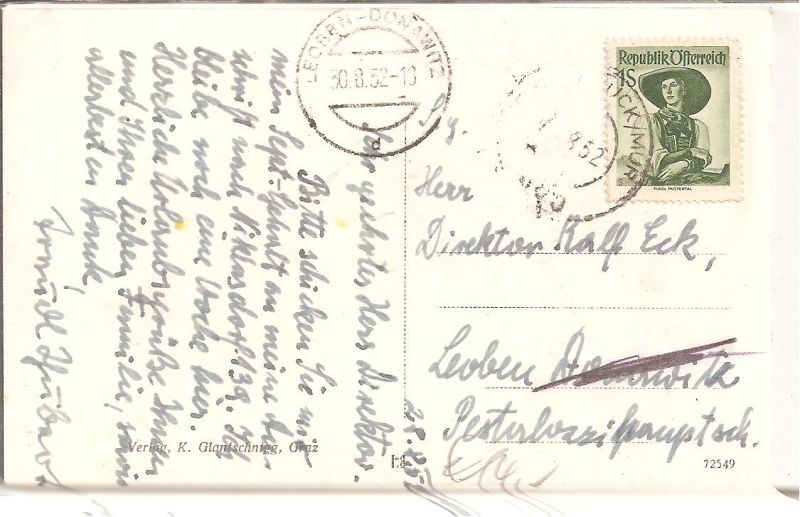 LEOBEN-DONAWITZ
30.8.52-18
Republik Österreich
1S
TIROL, PUSTERTAL
BRUCK/MUR
8.52
Sg.
Herr
Direktor Ralf Eck,
Leoben Donawitz
Pestalozzihauptsch.
28.8.52
Sehr geehrter Herr Direktor.
Bitte schicken Sie mir
mein Sept-Gehalt an meine An-
schrift nach Niklasdorf 139. Ich
bleibe noch eine Woche hier.
Herzliche Urlaubsgrüße Ihnen
und Ihrer lieben Familie, schon
allerbesten Dank,
Verlag, K. Glantschnigg, Graz
72549